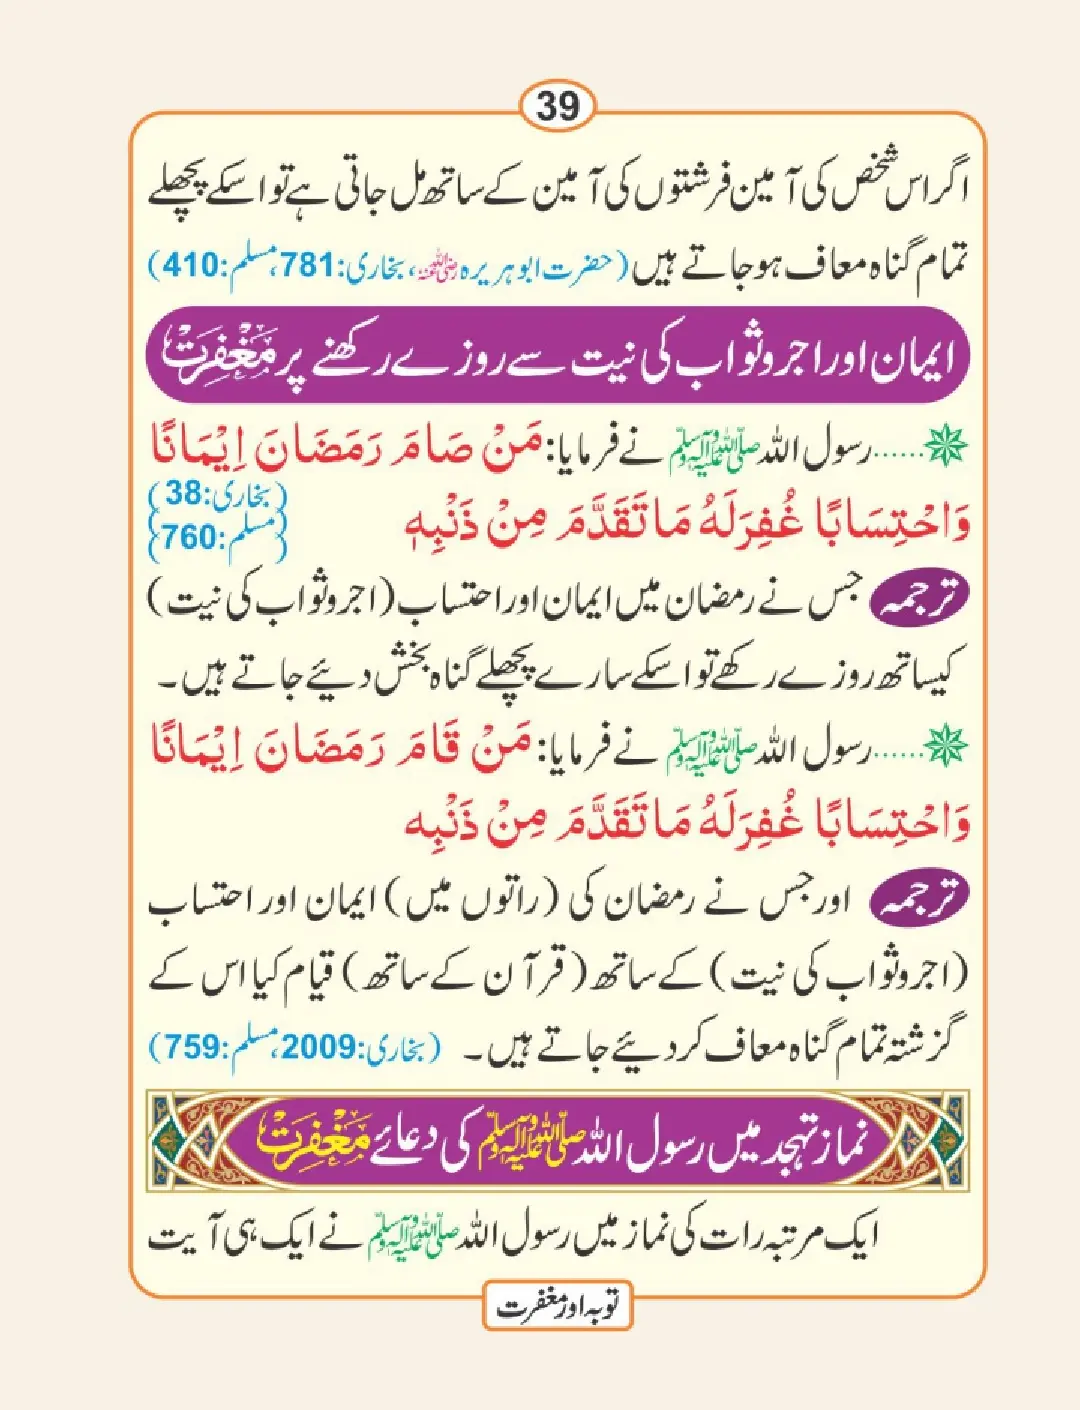 39
اگر اس شخص کی آمین فرشتوں کی آمین کے ساتھ مل جاتی ہے تو اسکے پچھلے
تمام گناہ معاف ہو جاتے ہیں (حضرت ابو ہریرہ رضی اللہ عنہ، بخاری:781، مسلم:410)
ایمان اور اجر و ثواب کی نیت سے روزے رکھنے پر مَغْفِرَتْ
......رسول اللہ صلی اللہ علیہ وسلم نے فرمایا: مَنْ صَامَ رَمَضَانَ اِيْمَانًا
وَاحْتِسَابًا غُفِرَلَهُ مَا تَقَدَّمَ مِنْ ذَنْبِهٖ (بخاری:38) (مسلم:760)
ترجمہ جس نے رمضان میں ایمان اور احتساب (اجر و ثواب کی نیت)
کیساتھ روزے رکھے تو اسکے سارے پچھلے گناہ بخش دیئے جاتے ہیں۔
......رسول اللہ صلی اللہ علیہ وسلم نے فرمایا: مَنْ قَامَ رَمَضَانَ اِيْمَانًا
وَاحْتِسَابًا غُفِرَلَهُ مَا تَقَدَّمَ مِنْ ذَنْبِه
ترجمہ اور جس نے رمضان کی (راتوں میں) ایمان اور احتساب
(اجر و ثواب کی نیت) کے ساتھ (قرآن کے ساتھ) قیام کیا اس کے
گزشتہ تمام گناہ معاف کر دیئے جاتے ہیں۔ (بخاری:2009، مسلم:759)
نماز تہجد میں رسول اللہ صلی اللہ علیہ وسلم کی دعائے مَغْفِرَتْ
ایک مرتبہ رات کی نماز میں رسول اللہ صلی اللہ علیہ وسلم نے ایک ہی آیت
توبہ اور مغفرت